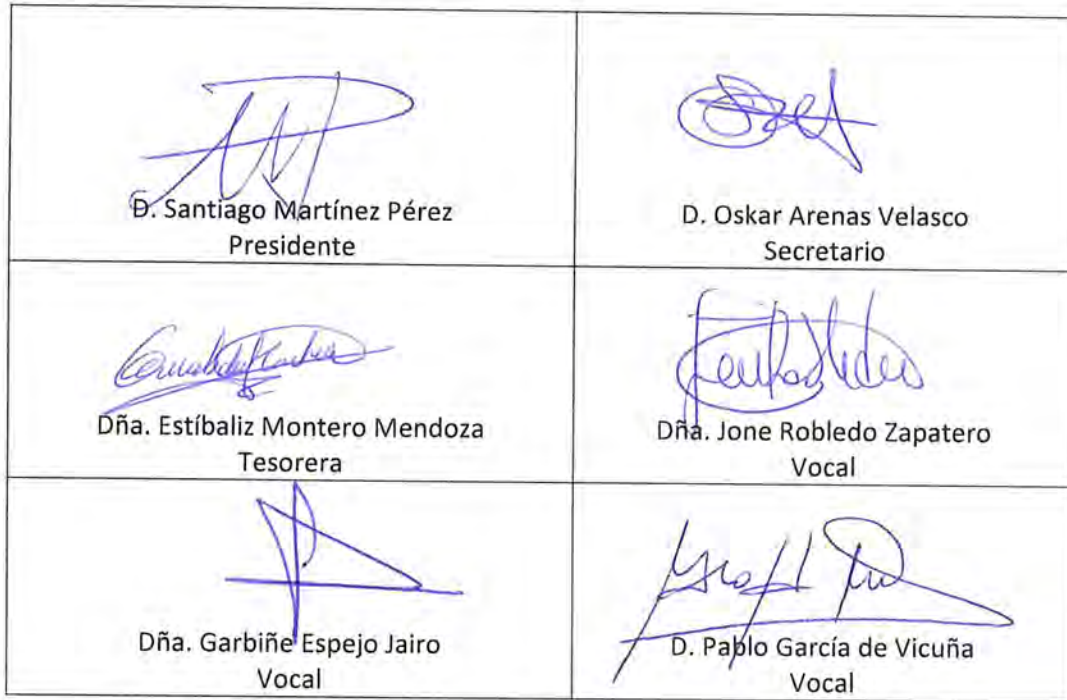 D. Santiago Martínez Pérez
Presidente
D. Oskar Arenas Velasco
Secretario
Dña. Estíbaliz Montero Mendoza
Tesorera
Dña. Jone Robledo Zapatero
Vocal
Dña. Garbiñe Espejo Jairo
Vocal
D. Pablo García de Vicuña
Vocal